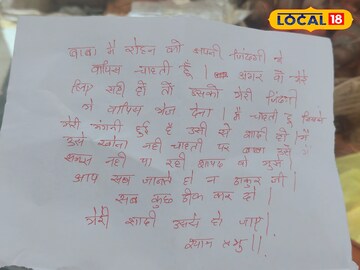 LOCAL 18
बाबा मै रोहन को अपनी जिंदगी मे
वापिस चाहती हूँ। अगर वो मेरे
लिए सही हो तो उसको मेरी जिंदगी
मे वापिस भेज देना। मैं चाहती हूं जिससे
मेरी मंगनी हुई है उसी से शादी हो। मैं
उसे खोना नहीं चाहती पर बाबा उसे
समझ नहीं आ रही
आप सब जानते हो न ठाकुर जी।
सब कुछ ठीक कर दो।
मेरी शादी उससे हो जाए
श्याम प्रभु।।